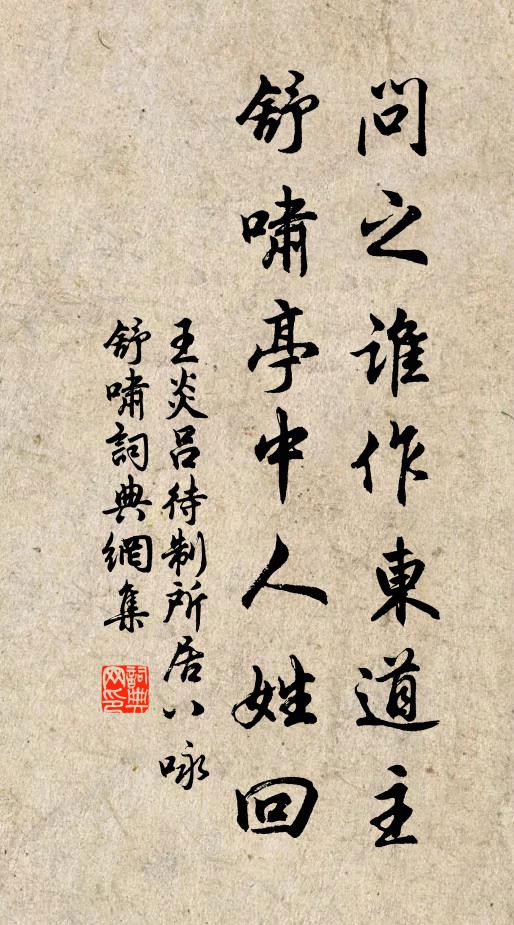 問之誰作東道主
舒嘯亭中人姓回
王炎呂待制所居八咏
舒嘯詞典網集
詞典网印